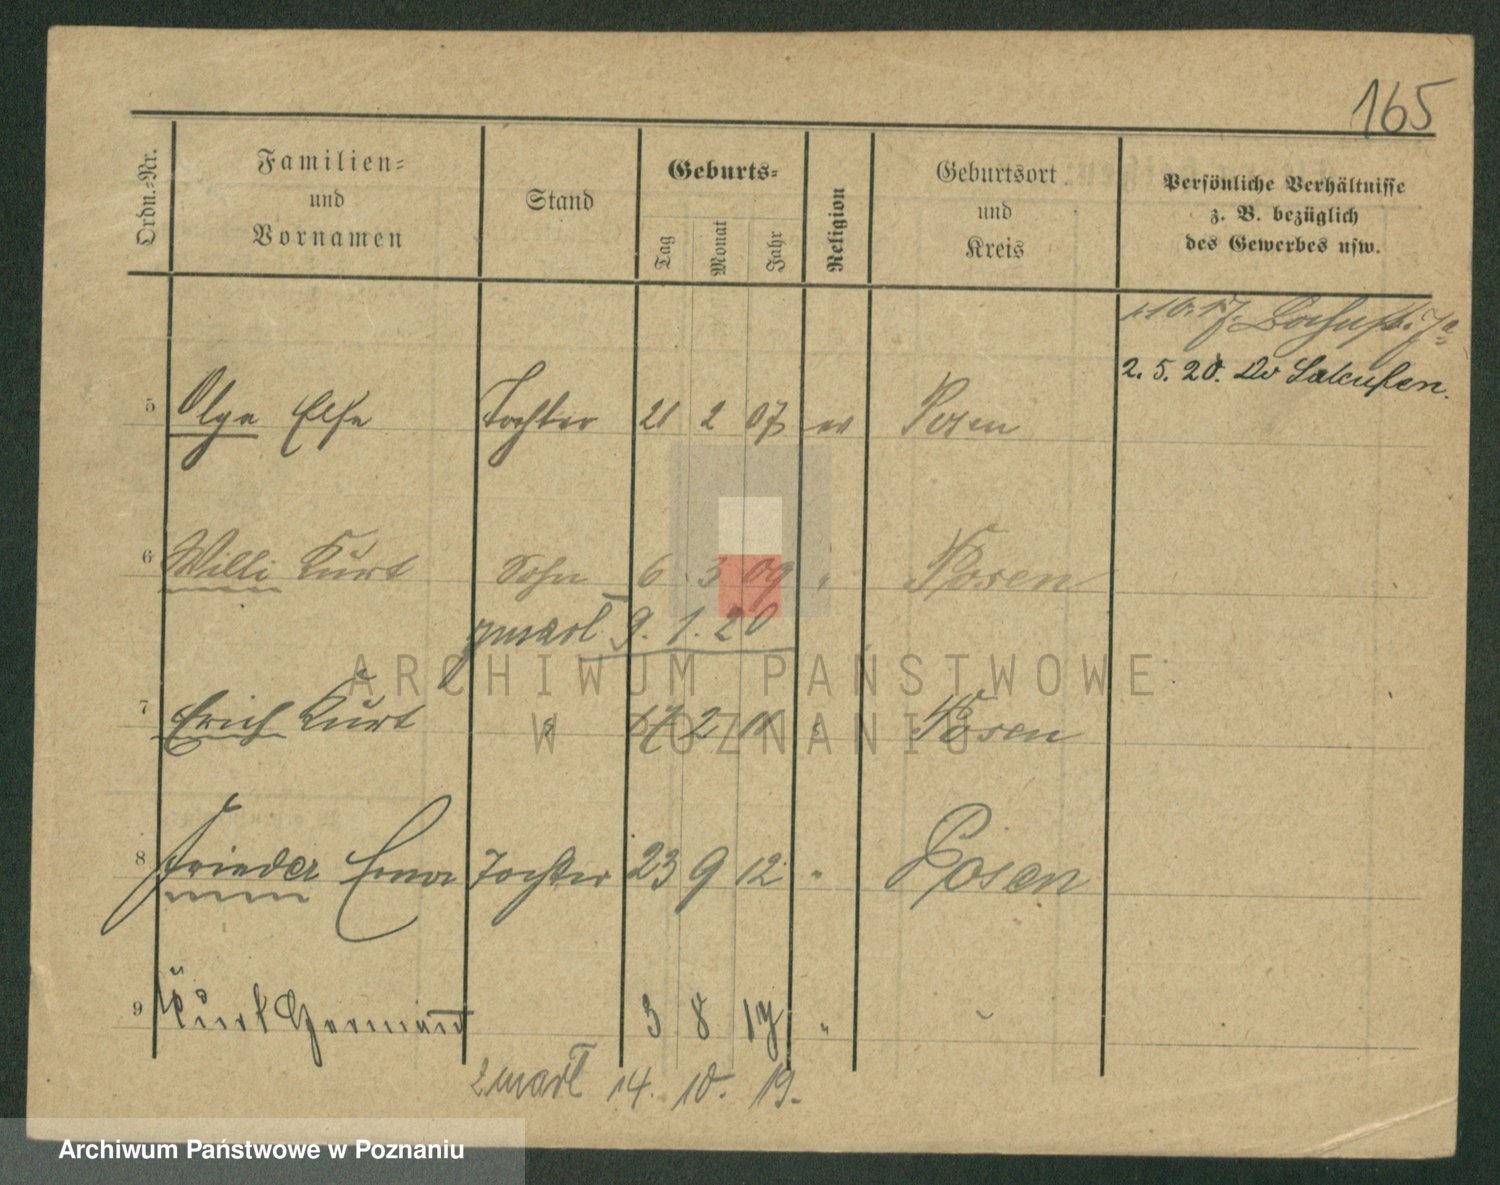 165
Ordn.=Nr.
Familien=
und
Vornamen
Stand
Geburts=
Tag
Monat
Jahr
Religion
Geburtsort
und
Kreis
Persönliche Verhältnisse
z. B. bezüglich
des Gewerbes usw.
2. 5. 20.
5 Olga Else Tochter 21 2 07 ev Posen
6 Willi Kurt Sohn 6 3 09 " Posen
zmarł 9. 1. 20
7 Erich Kurt " 17 2 11 " Posen
8 Frieda Erna Tochter 23 9 12 " Posen
9 Kurt Hermann 3 8 17 "
zmarł 14. 10. 19.
ARCHIWUM PAŃSTWOWE
W POZNANIU
Archiwum Państwowe w Poznaniu